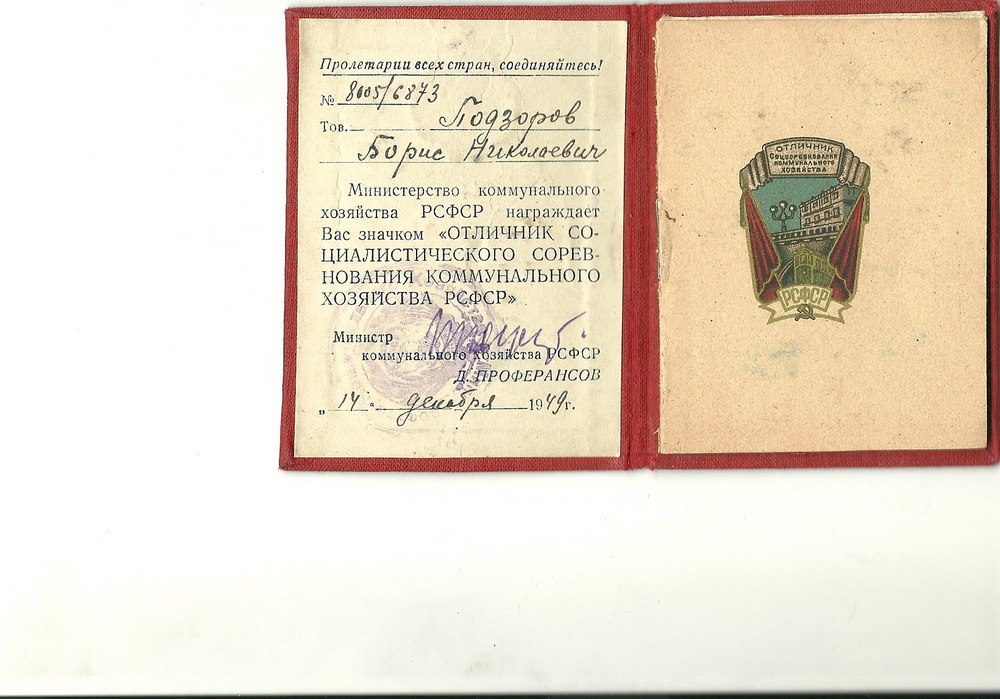 Пролетарии всех стран, соединяйтесь!
№ 8005/6873
Тов. Подзоров
Борис Николаевич
Министерство коммунального
хозяйства РСФСР награждает
Вас значком «ОТЛИЧНИК СО-
ЦИАЛИСТИЧЕСКОГО СОРЕВ-
НОВАНИЯ КОММУНАЛЬНОГО
ХОЗЯЙСТВА РСФСР»
Министр
коммунального хозяйства РСФСР
Д. ПРОФЕРАНСОВ
„14“ декабря 1949г.
ОТЛИЧНИК
СОЦСОРЕВНОВАНИЯ
КОММУНАЛЬНОГО
ХОЗЯЙСТВА
РСФСР